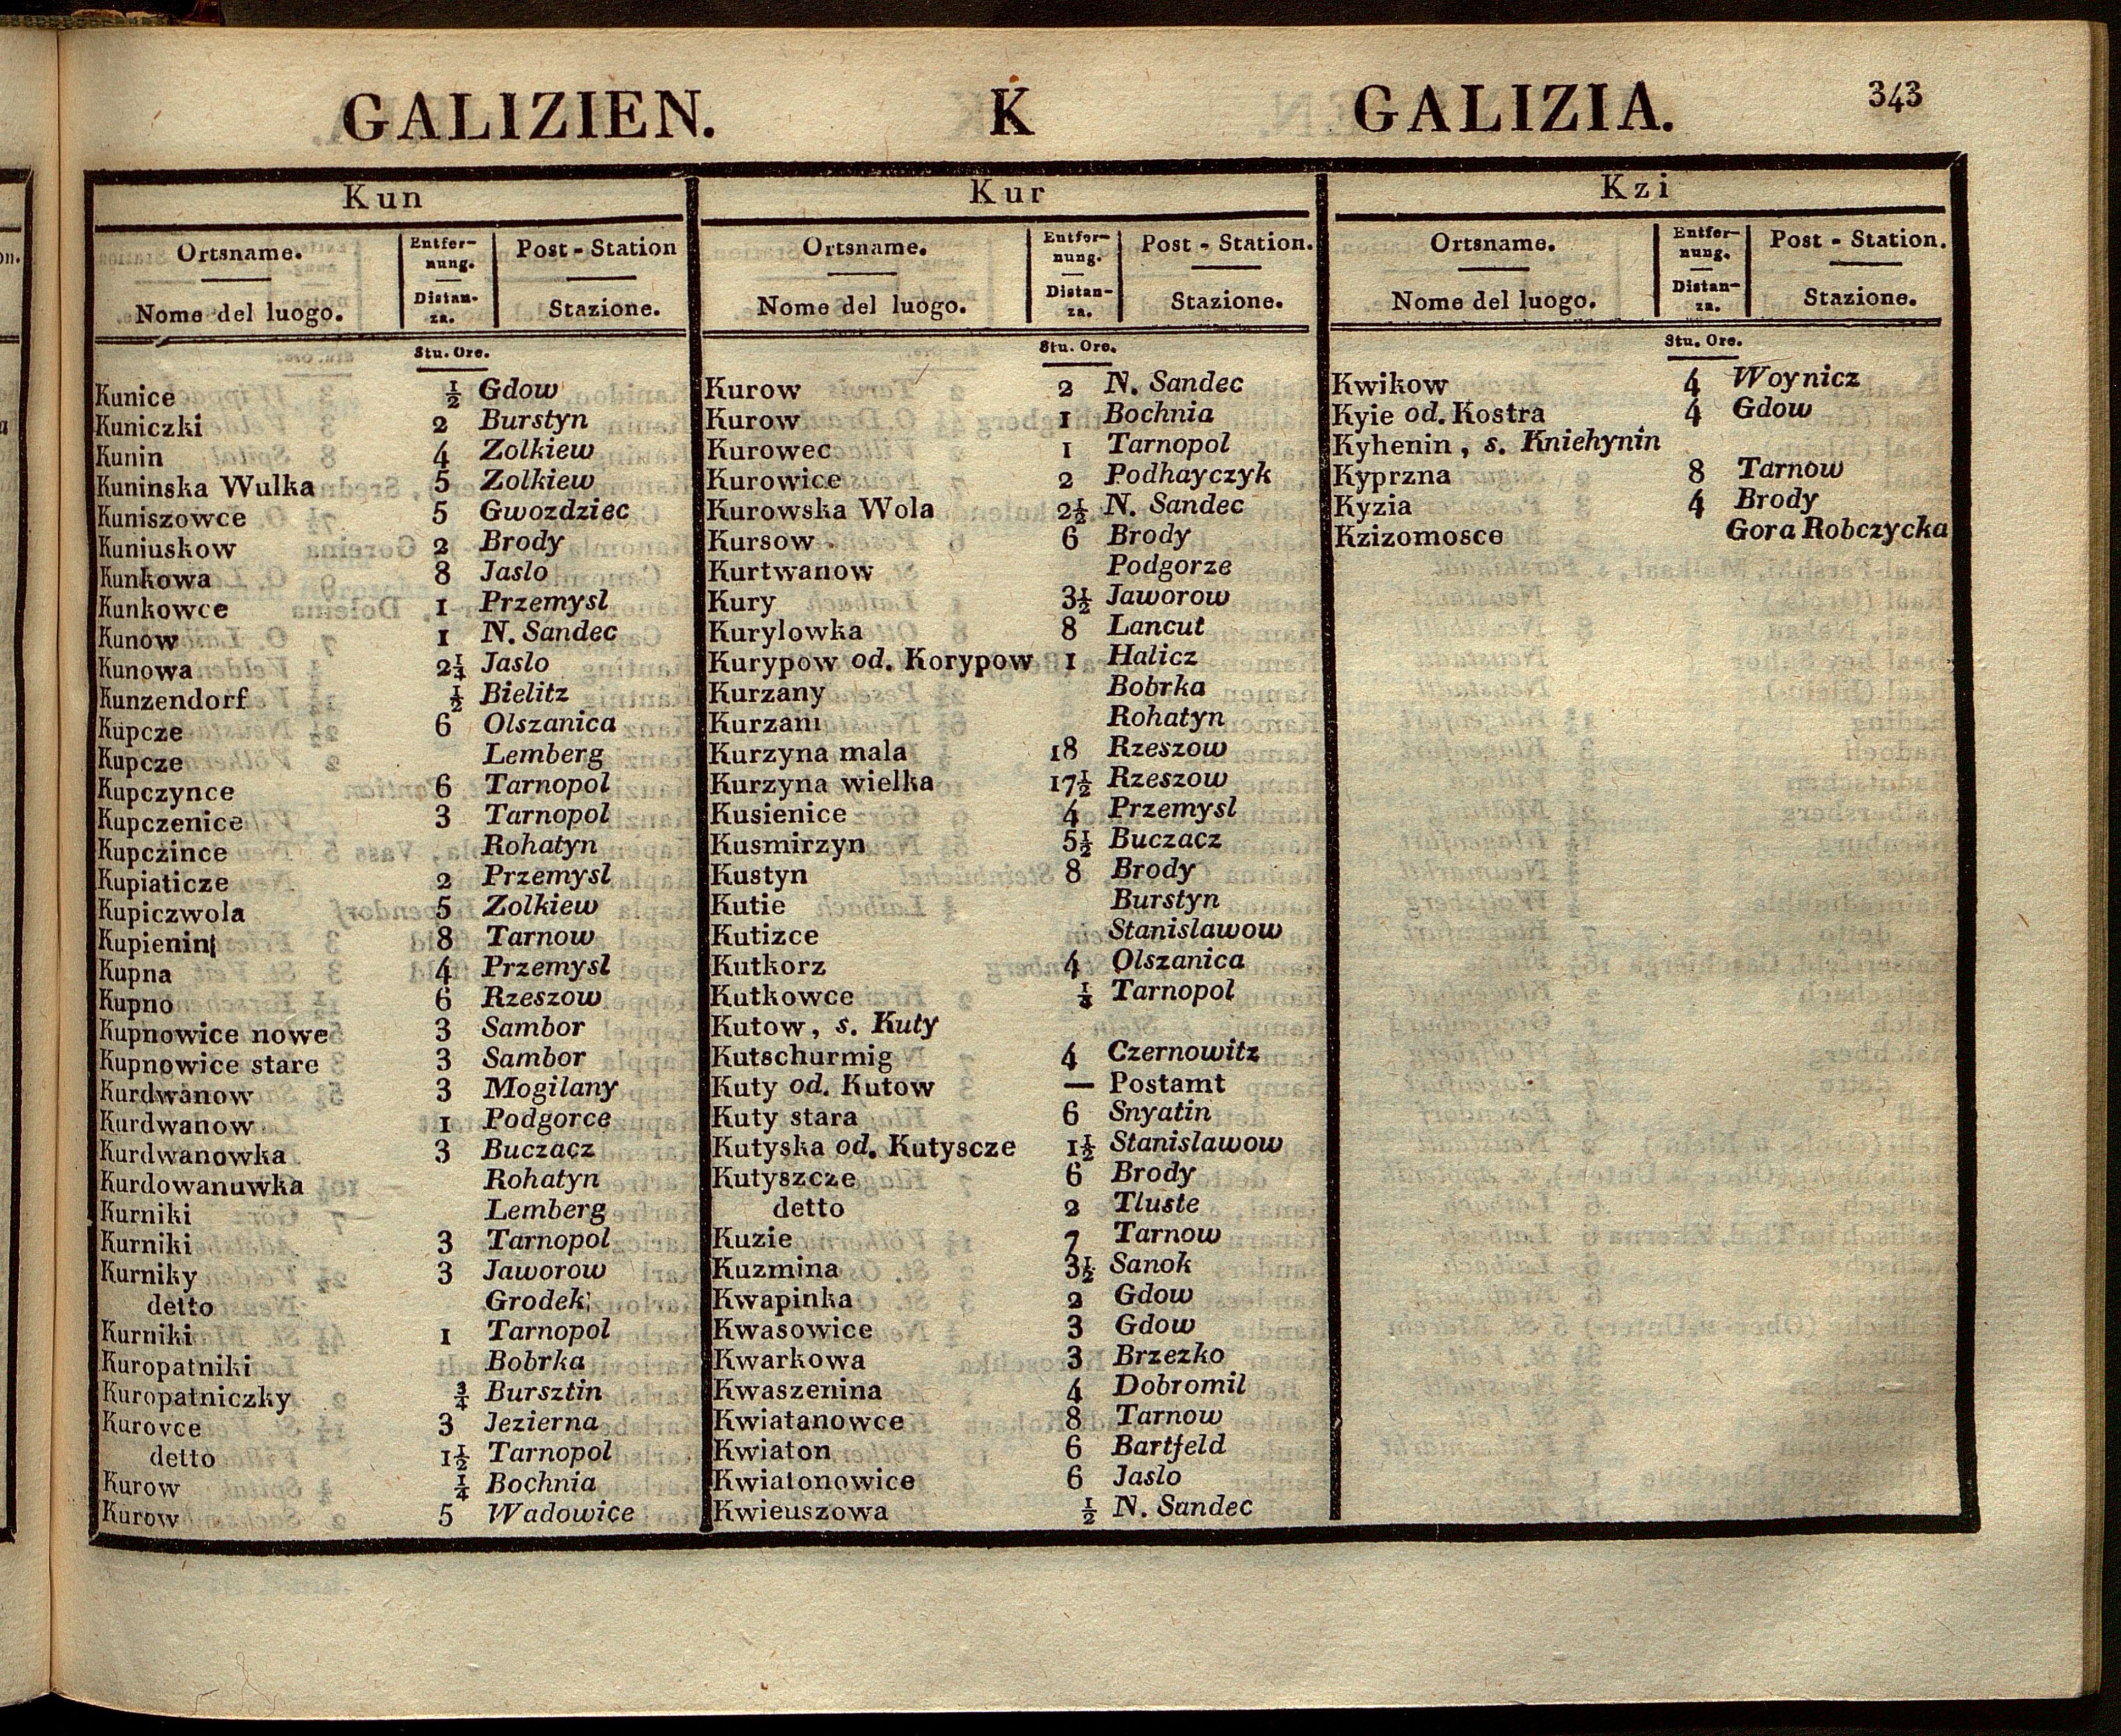 GALIZIEN. K GALIZIA. 343
Kun
Ortsname. Entfer- Post - Station
nung.
Nome del luogo. Distan- Stazione.
za.
Stu. Ore.
Kunice ½ Gdow
Kuniczki 2 Burstyn
Kunin 4 Zolkiew
Kuninska Wulka 5 Zolkiew
Kuniszowce 5 Gwozdziec
Kuniuskow 2 Brody
Kunkowa 8 Jaslo
Kunkowce 1 Przemysl
Kunow 1 N. Sandec
Kunowa 2¼ Jaslo
Kunzendorf ½ Bielitz
Kupcze 6 Olszanica
Kupcze Lemberg
Kupczynce 6 Tarnopol
Kupczenice 3 Tarnopol
Kupczince Rohatyn
Kupiaticze 2 Przemysl
Kupiczwola 5 Zolkiew
Kupienin 8 Tarnow
Kupna 4 Przemysl
Kupno 6 Rzeszow
Kupnowice nowe 3 Sambor
Kupnowice stare 3 Sambor
Kurdwanow 3 Mogilany
Kurdwanow 1 Podgorce
Kurdwanowka 3 Buczacz
Kurdowanuwka Rohatyn
Kurniki Lemberg
Kurniki 3 Tarnopol
Kurniky 3 Jaworow
detto Grodek
Kurniki 1 Tarnopol
Kuropatniki Bobrka
Kuropatniczky ¾ Bursztin
Kurovce 3 Jezierna
detto 1½ Tarnopol
Kurow ¼ Bochnia
Kurow 5 Wadowice
Kur
Ortsname. Entfer- Post - Station.
nung.
Nome del luogo. Distan- Stazione.
za.
Stu. Ore.
Kurow 2 N. Sandec
Kurow 1 Bochnia
Kurowec 1 Tarnopol
Kurowice 2 Podhayczyk
Kurowska Wola 2½ N. Sandec
Kursow 6 Brody
Kurtwanow Podgorze
Kury 3½ Jaworow
Kurylowka 8 Lancut
Kurypow od. Korypow 1 Halicz
Kurzany Bobrka
Kurzani Rohatyn
Kurzyna mala 18 Rzeszow
Kurzyna wielka 17½ Rzeszow
Kusienice 4 Przemysl
Kusmirzyn 5½ Buczacz
Kustyn 8 Brody
Kutie Burstyn
Kutizce Stanislawow
Kutkorz 4 Olszanica
Kutkowce Tarnopol
Kutow, s. Kuty
Kutschurmig 4 Czernowitz
Kuty od. Kutow — Postamt
Kuty stara 6 Snyatin
Kutyska od. Kutyscze 1½ Stanislawow
Kutyszcze 6 Brody
detto 2 Tluste
Kuzie 7 Tarnow
Kuzmina 3½ Sanok
Kwapinka 2 Gdow
Kwasowice 3 Gdow
Kwarkowa 3 Brzezko
Kwaszenina 4 Dobromil
Kwiatanowce 8 Tarnow
Kwiaton 6 Bartfeld
Kwiatonowice 6 Jaslo
Kwieuszowa ½ N. Sandec
Kzi
Ortsname. Entfer- Post - Station.
nung.
Nome del luogo. Distan- Stazione.
za.
Stu. Ore.
Kwikow 4 Woynicz
Kyie od. Kostra 4 Gdow
Kyhenin, s. Kniehynin
Kyprzna 8 Tarnow
Kyzia 4 Brody
Kzizomosce Gora Robczycka